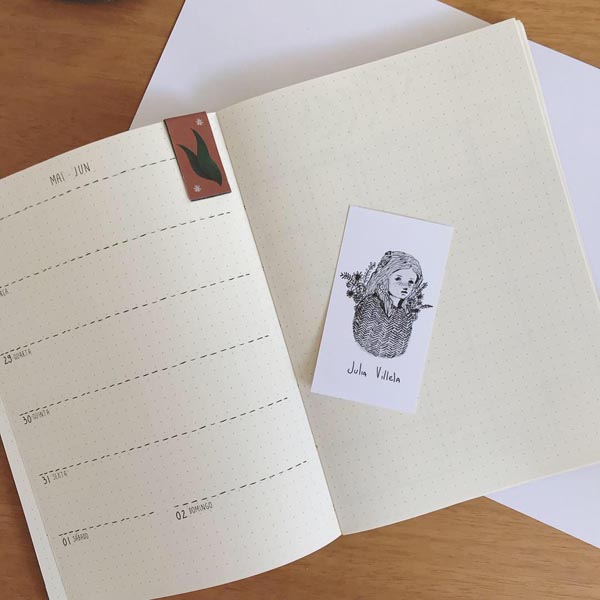 MAI - JUN
29 QUARTA
30 QUINTA
31 SEXTA
01 SÁBADO
02 DOMINGO
Julia Villela